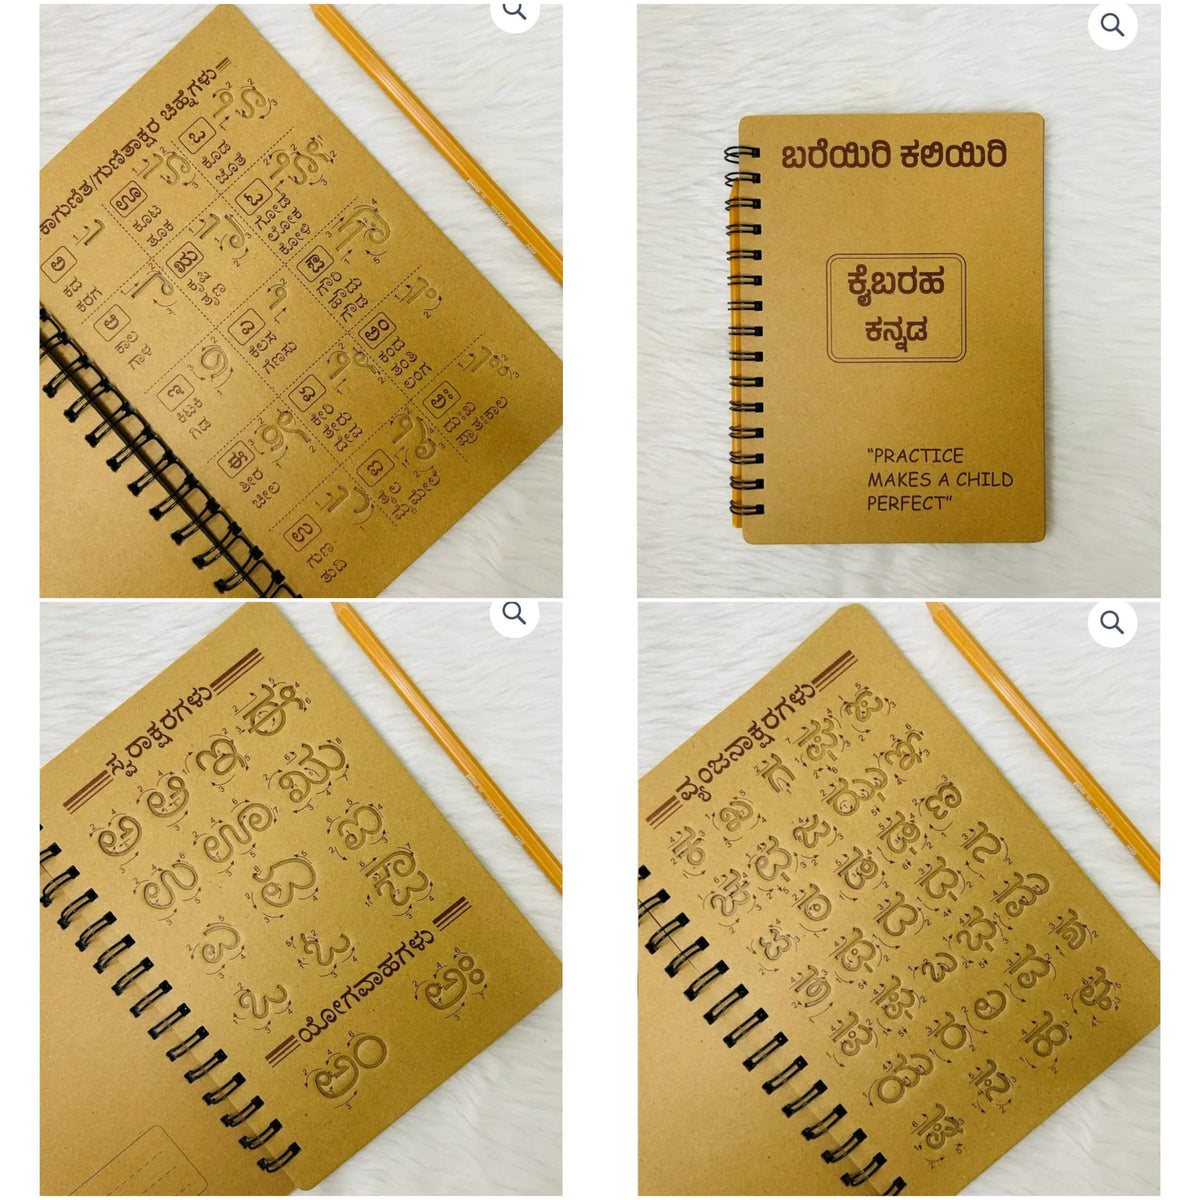 ಕಾಗುಣಿತ/ಗುಣಿತಾಕ್ಷರ ಚಿಹ್ನೆಗಳು
ಅ
ಕದ
ಕರಗ
ಆ
ಕಾಲ
ಗಾಳಿ
ಇ
ಕಿಟಕಿ
ಗಿಡ
ಈ
ಕೀರ
ಚೀಲ
ಉ
ಗುಣ
ತುದಿ
ಊ
ಕೂಟ
ತೂಕ
ಋ
ಎ
ಕೆಲಸ
ಗೆಣಸು
ಏ
ಕೇರಿ
ಐ
ಒ
ಓ
ಲೋಕ
ಕೋಳಿ
ಔ
ಅಂ
ಅಃ
ದುಃಖ
ಪ್ರಾತಃಕಾಲ
ಬರೆಯಿರಿ ಕಲಿಯಿರಿ
ಕೈಬರಹ
ಕನ್ನಡ
"PRACTICE
MAKES A CHILD
PERFECT"
ಸ್ವರಾಕ್ಷರಗಳು
ಅ ಆ ಇ ಈ
ಉ ಊ ಋ
ಎ ಏ ಐ
ಒ ಓ ಔ
ಯೋಗವಾಹಗಳು
ಅಂ ಅಃ
ವ್ಯಂಜನಾಕ್ಷರಗಳು
ಕ ಖ ಗ ಘ ಙ
ಚ ಛ ಜ ಝ ಞ
ಟ ಠ ಡ ಢ ಣ
ತ ಥ ದ ಧ ನ
ಪ ಫ ಬ ಭ ಮ
ಯ ರ ಲ ವ ಶ
ಷ ಸ ಹ ಳ